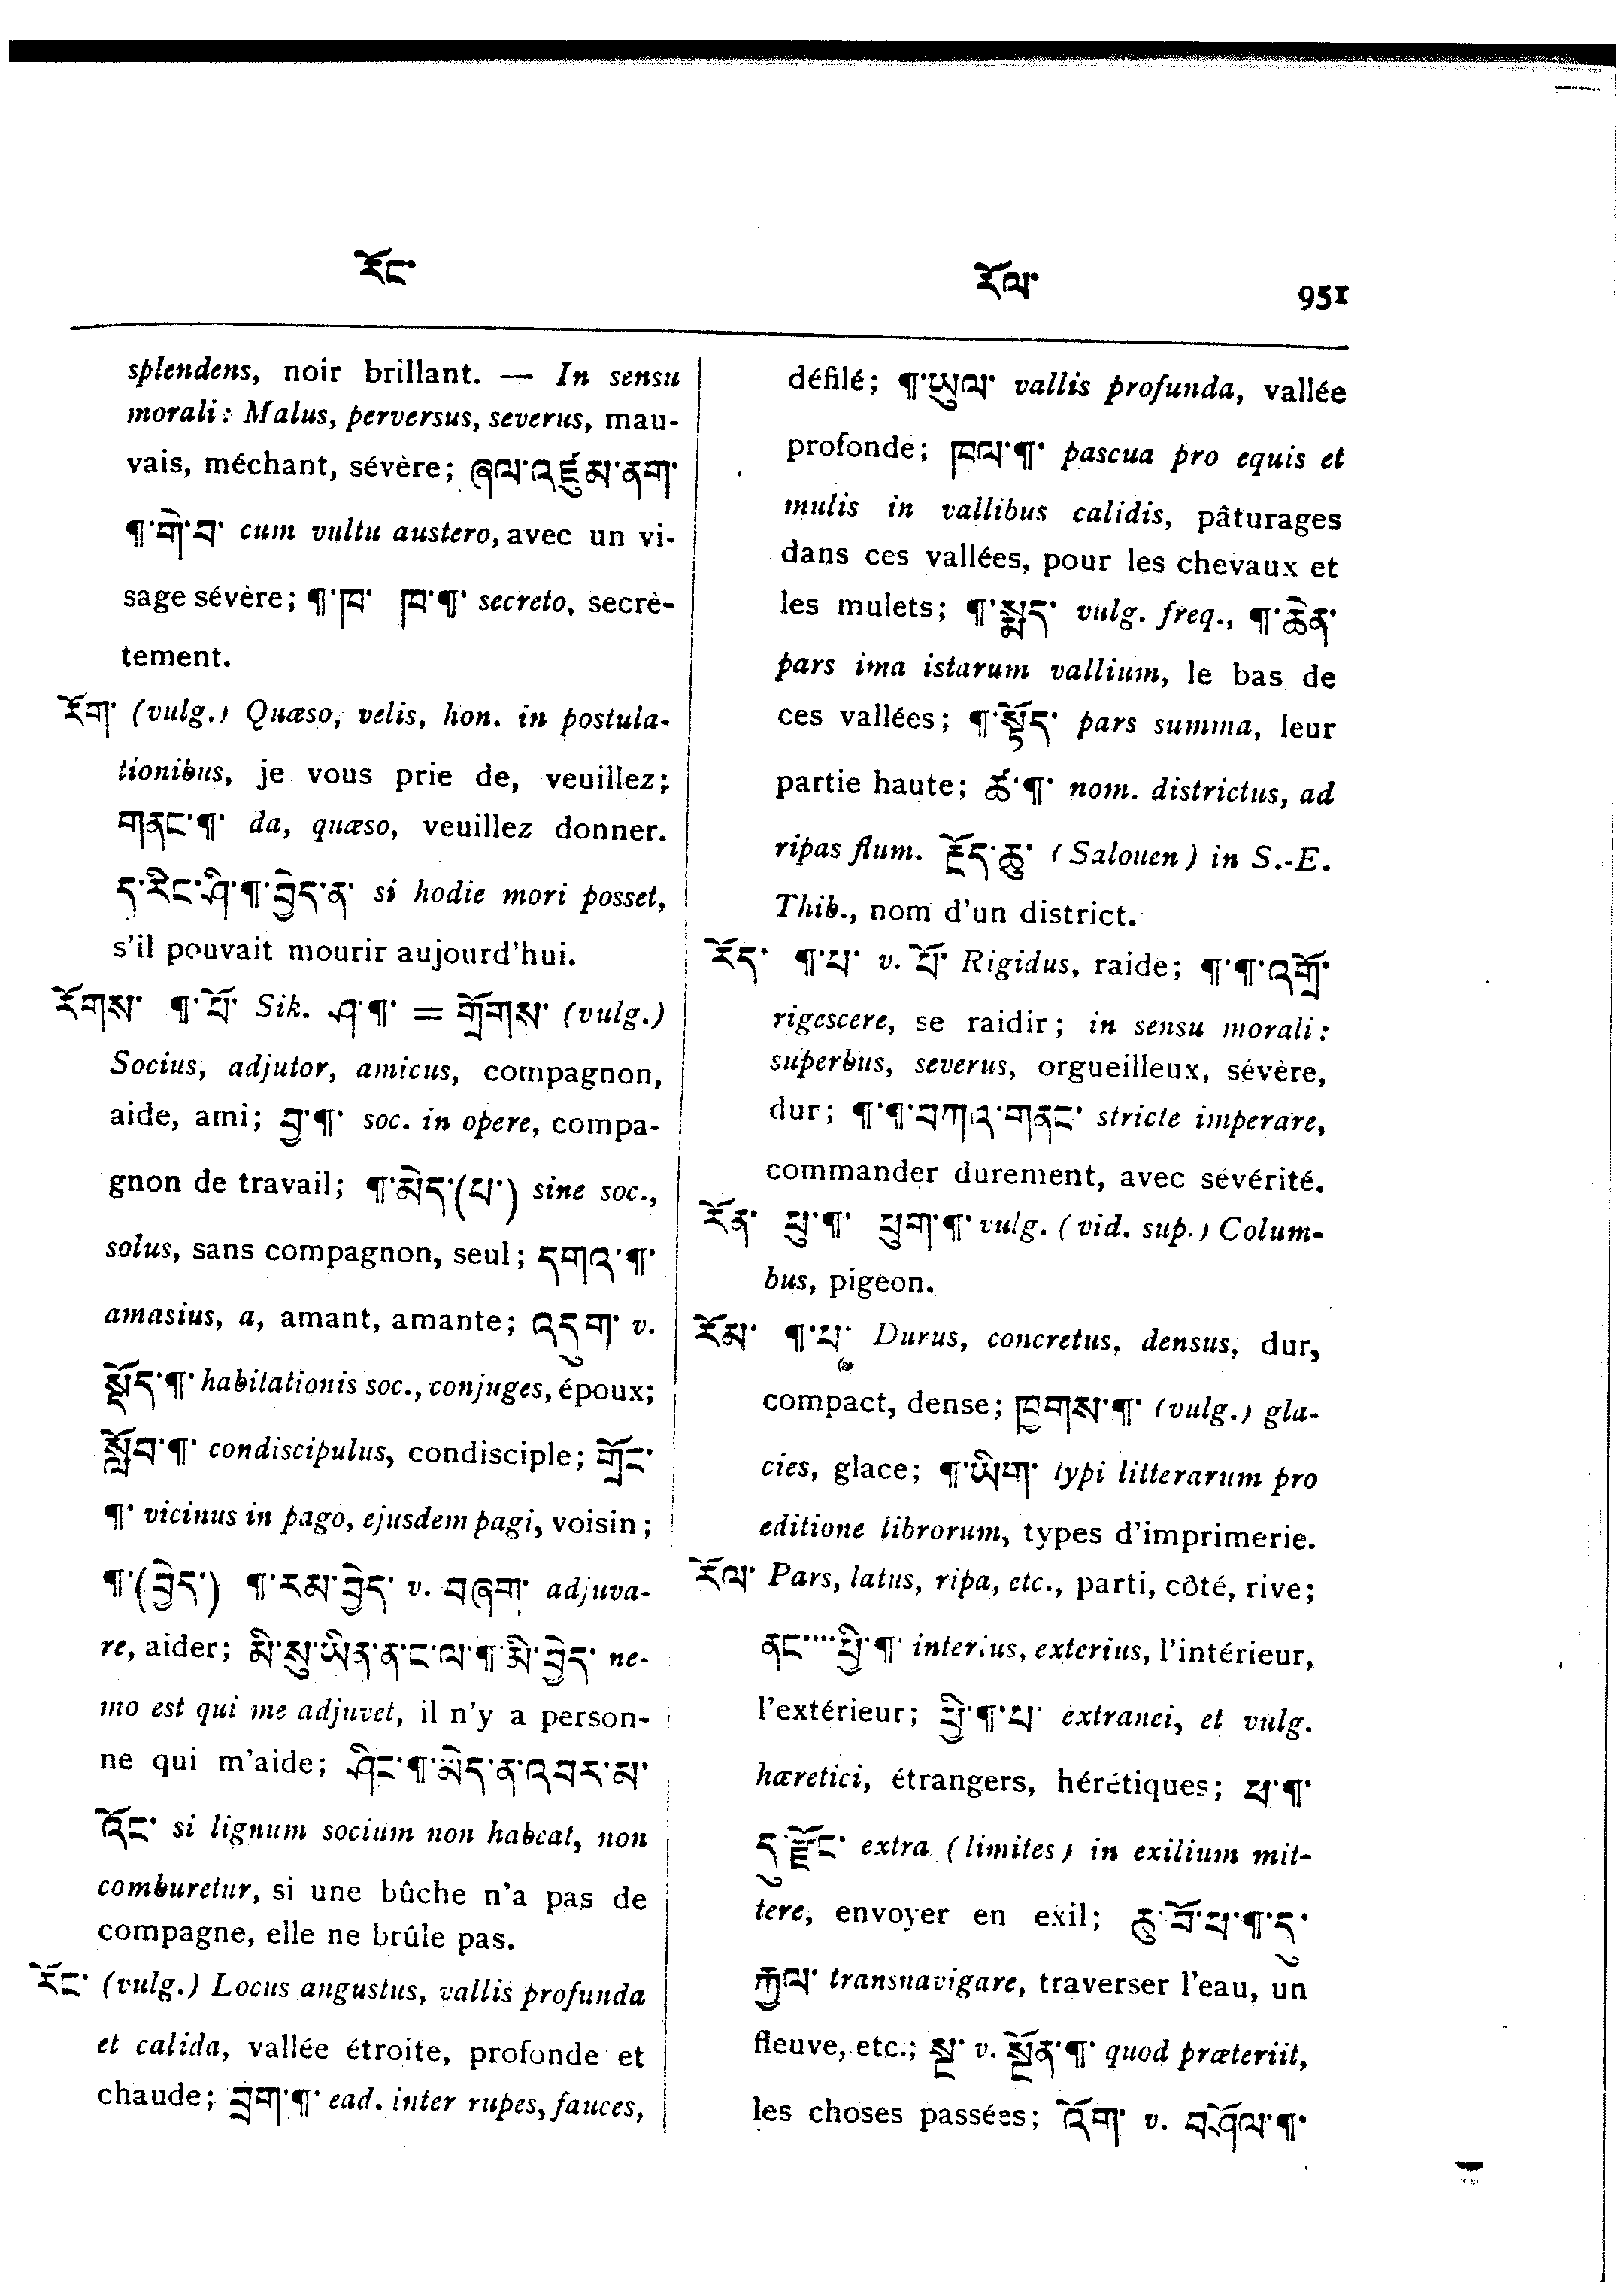 རོང་
རོལ་
951
splendens, noir brillant. — In sensu
morali: Malus, perversus, severus, mau-
vais, méchant, sévère; ཞལ་འཛུམ་ནག་
¶་གེ་བ་ cum vultu austero, avec un vi-
sage sévère; ¶་ཁ་ ཁ་¶་ secreto, secrè-
tement.
རོག་ (vulg.) Quæso, velis, hon. in postula-
tionibus, je vous prie de, veuillez;
གནང་¶་ da, quæso, veuillez donner.
ད་རིང་ཤི་¶་བྱེད་ན་ si hodie mori posset,
s'il pouvait mourir aujourd'hui.
རོགས་ ¶་པོ་ Sik. ཤ་¶་ = གྲོགས་ (vulg.)
Socius, adjutor, amicus, compagnon,
aide, ami; བྱ་¶་ soc. in opere, compa-
gnon de travail; ¶་མེད་(པ་) sine soc.,
solus, sans compagnon, seul; དགའ་¶་
amasius, a, amant, amante; འདུག་ v.
སྡོད་¶་ habitationis soc., conjuges, époux;
སློབ་¶་ condiscipulus, condisciple; གྲོང་
¶་ vicinus in pago, ejusdem pagi, voisin;
¶་(བྱེད་) ¶་རམ་བྱེད་ v. བཞག་ adjuva-
re, aider; མི་སུ་ཡིན་ན་ང་ལ་¶་མི་བྱེད་ ne-
mo est qui me adjuvet, il n'y a person-
ne qui m'aide; ཤིང་¶་མེད་ན་འབར་མ་
འོང་ si lignum socium non habeat, non
comburetur, si une bûche n'a pas de
compagne, elle ne brûle pas.
རོང་ (vulg.) Locus angustus, vallis profunda
et calida, vallée étroite, profonde et
chaude; བྲག་¶་ ead. inter rupes, fauces,
défilé; ¶་ཡུལ་ vallis profunda, vallée
profonde; ཁལ་¶་ pascua pro equis et
mulis in vallibus calidis, pâturages
dans ces vallées, pour les chevaux et
les mulets; ¶་སྨད་ vulg. freq., ¶་ཆེན་
pars ima istarum vallium, le bas de
ces vallées; ¶་སྟོད་ pars summa, leur
partie haute; ཚ་¶་ nom. districtus, ad
ripas flum. རྫོད་ཆུ་ (Salouen) in S.-E.
Thib., nom d'un district.
རོད་ ¶་པ་ v. པོ་ Rigidus, raide; ¶་¶་འགྲོ་
rigescere, se raidir; in sensu morali:
superbus, severus, orgueilleux, sévère,
dur; ¶་¶་བཀའ་གནང་ stricte imperare,
commander durement, avec sévérité.
རོན་ ཕུ་¶་ ཕུག་¶་ vulg. (vid. sup.) Colum-
bus, pigeon.
རོམ་ ¶་པ་ Durus, concretus, densus, dur,
compact, dense; ཁྱགས་¶་ (vulg.) gla-
cies, glace; ¶་ཡིག་ typi litterarum pro
editione librorum, types d'imprimerie.
རོལ་ Pars, latus, ripa, etc., parti, côté, rive;
ནང་་་་ཕྱི་¶་ interius, exterius, l'intérieur,
l'extérieur; ཕྱི་¶་པ་ extranei, et vulg.
hæretici, étrangers, hérétiques; ཕ་¶་
ཏུ་རྫོང་ extra (limites) in exilium mit-
tere, envoyer en exil; ཆུ་བོ་ཕ་¶་ཏུ་
རྒྱལ་ transnavigare, traverser l'eau, un
fleuve, etc.; སྔ་ v. སྔོན་¶་ quod præteriit,
les choses passées; འོག་ v. བཤོལ་¶་